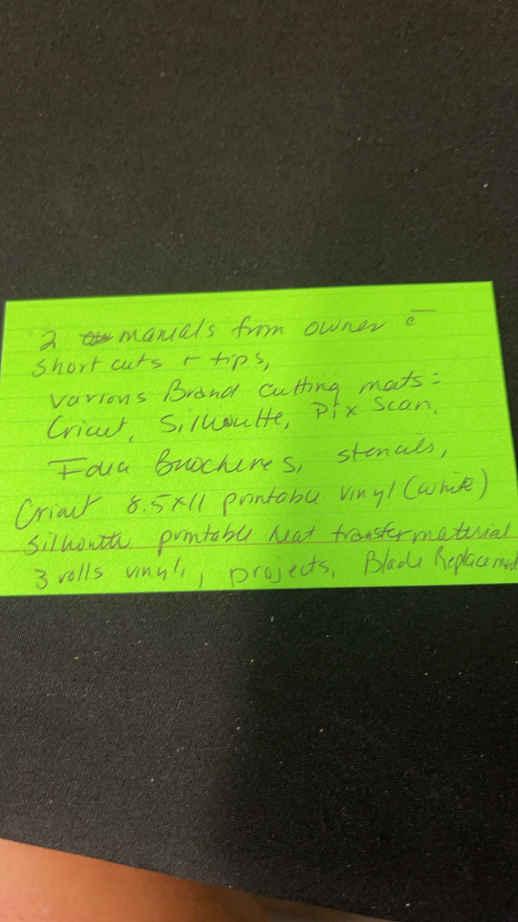 2 manuals from owner c̄
short cuts + tips,
various Brand cutting mats:
Cricut, Silhoutte, Pix Scan,
Idea Brochures, stencils,
Cricut 8.5x11 printable vinyl (white)
Silhoutte printable heat transfer material
3 rolls vinyl, projects, Blade Replacement